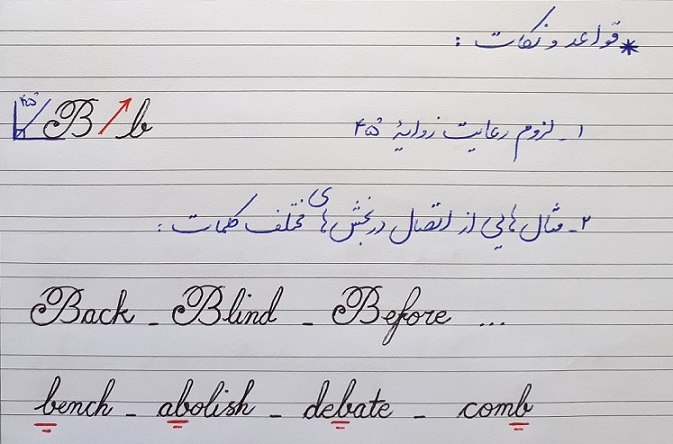 * قواعد و نکات :
۴۵° B b
۱ـ لزوم رعایت زوایهٔ ۴۵°
۲ـ مثال هایی از اتصال در بخش های مختلف کلمات :
Back - Blind - Before ...
bench - abolish - debate - comb